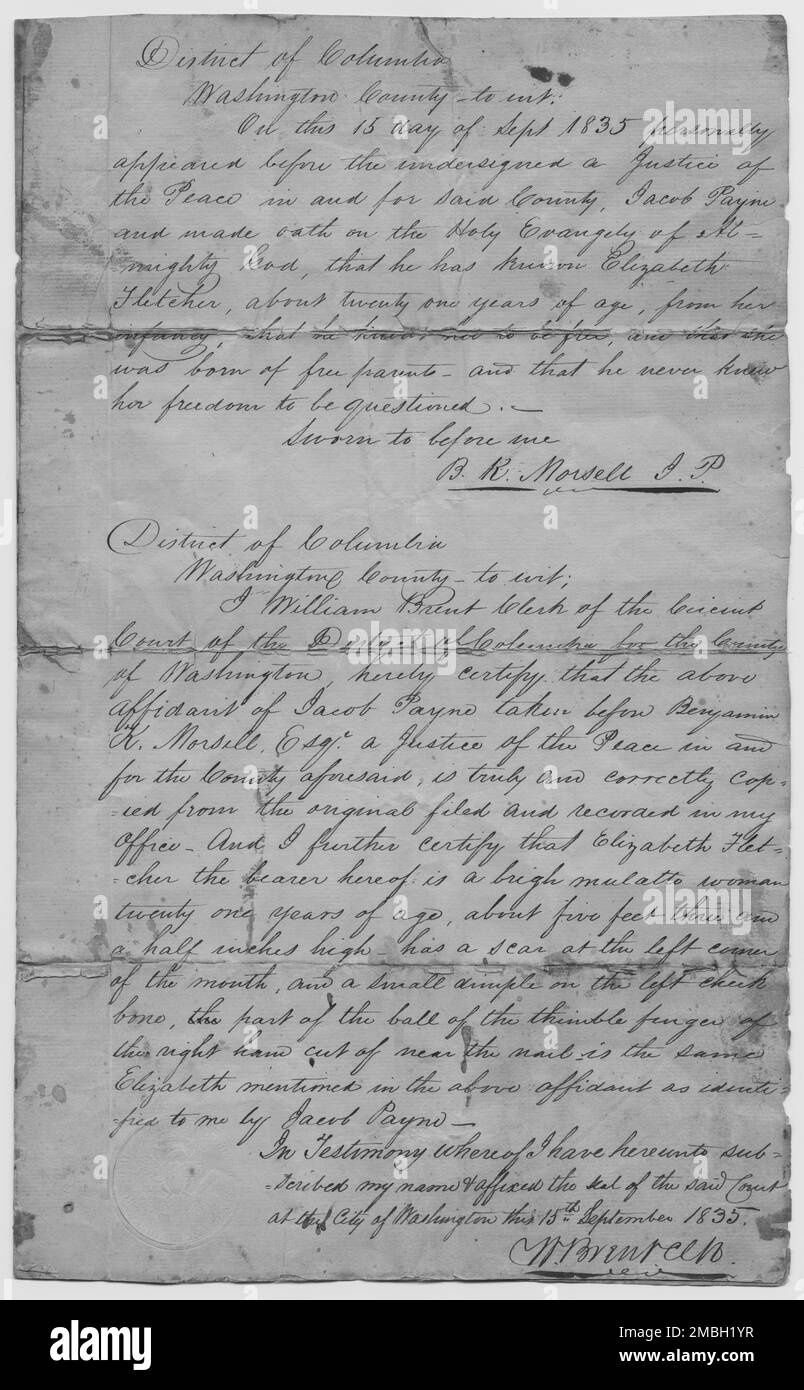 District of Columbia
Washington County - to wit:
On this 15 day of Sept 1835 personally
appeared before the undersigned a Justice of
the Peace in and for said County, Jacob Payne
and made oath on the Holy Evangely of Al=
=mighty God, that he has known Elizabeth
Fletcher, about twenty one years of age, from her
infancy, that he knows her to be free, and that she
was born of free parents - and that he never knew
her freedom to be questioned. -
Sworn to before me
B. K. Morsell J. P.
District of Columbia
Washington County - to wit;
I William Brent Clerk of the Circuit
Court of the District of Columbia for the County
of Washington, hereby certify that the above
affidavit of Jacob Payne taken before Benjamin
K. Morsell, Esqr. a Justice of the Peace in and
for the County aforesaid, is truly and correctly cop=
=ied from the original filed and recorded in my
Office - And I further certify that Elizabeth Flet=
=cher the bearer hereof is a brigh mulatto woman
twenty one years of age, about five feet three and
a half inches high - has a scar at the left corner
of the mouth, and a small dimple on the left cheek
bone, the part of the ball of the thimble finger of
the right hand cut of near the nail is the same
Elizabeth mentioned in the above affidavit as identi=
=fied to me by Jacob Payne -
In Testimony whereof I have hereunto sub=
=scribed my name & affixed the seal of the said Court
at the City of Washington this 15th. September 1835.
W. Brent Clk.
alamy
Image ID: 2MBH1YR
www.alamy.com